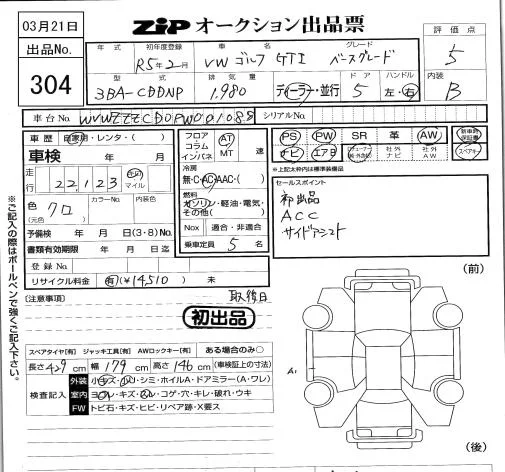 03月21日
ZIP オークション出品票
出品No.
304
年式 初年度登録 車名 グレード
R5年2月 VW ゴルフ GTI ベースグレード
型式 排気量 ドア ハンドル
3BA-CDDNP 1,980 ディーラー・並行 5 左・右
評価点
5
内装
B
車台No. シリアルNo.
車歴 自家用・レンタ・( )
車検 年 月
走行 22,123 km マイル
色 (元色) クロ カラーNo. 内装色
予備検 年 月 日(3・8)ナンバー
書類有効期限 年 月 日迄
登録No.
リサイクル料金 有(¥14,510) 未
フロア コラム インパネ AT MT 速
冷房
無・C・AC・AAC・( )
燃料
ガソリン・軽油・電気・その他( )
Nox 適合・非適合
乗車定員 5 名
PS PW SR 革 AW 新車時保証書
ナビ エアB 社外ナビ 社外AW スペアキー
※上記太枠内は標準装備品
セールスポイント
初出品
ACC
サイドアシスト
※ご記入の際はボールペンで強くご記入下さい。
[注意事項] 取後日
初出品
スペアタイヤ[有] ジャッキ工具[有] AWロックキー[有] ある場合のみ○
長さ429cm 幅179cm 高さ146cm (車検証上の寸法)
検査記入
外装 小キズ・凹・シミ・ホイルA・ドアミラー(A・ワレ)
室内 ヨゴレ・キズ・スレ・コゲ・穴・キレ・破れ・ウキ
FW トビ石・キズ・ヒビ・リペア跡・X要ス
(前)
A1
(後)